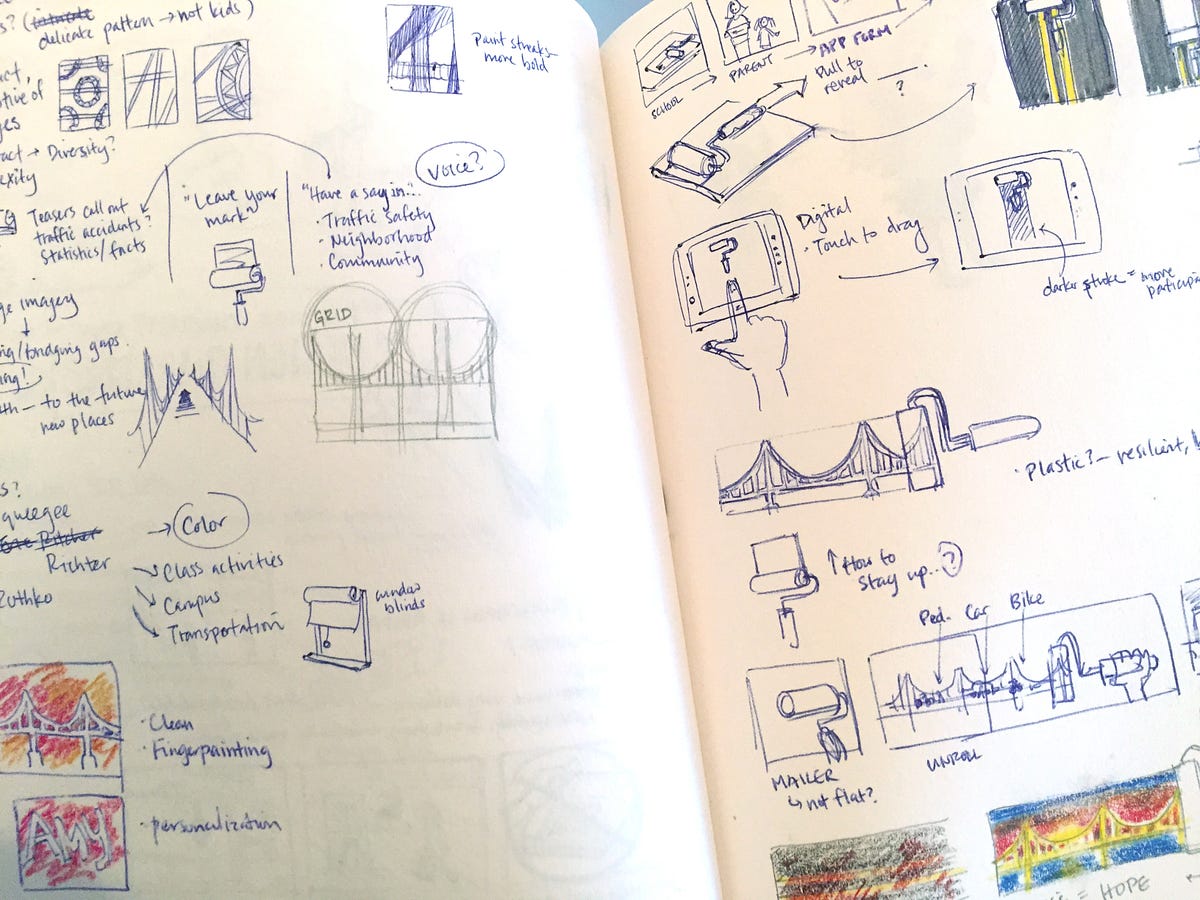 s? (intricate
delicate pattern → not kids)
Paint streaks
more bold
act,
tive of
ges
act → Diversity?
exity
Teasers call out
traffic accidents?
statistics/facts
"Leave your
mark"
"Have a say in..."
· Traffic safety
· Neighborhood
· Community
Voice?
ge imagery
ng/bridging gaps.
ing!
th — to the future
new places
GRID
s?
squeegee
Richter
Rothko
→ Color
Class activities
Campus
Transportation
window
blinds
· Clean
· Fingerpainting
AMY
· personalization
SCHOOL
PARENT
APP FORM
Pull to
reveal
?
Digital
· Touch to drag
darker stroke = more
participa
· Plastic? — resilient,
↑ How to
stay up.. ?
Ped. Car Bike
MAILER
↳ not flat?
UNROLL
= HOPE